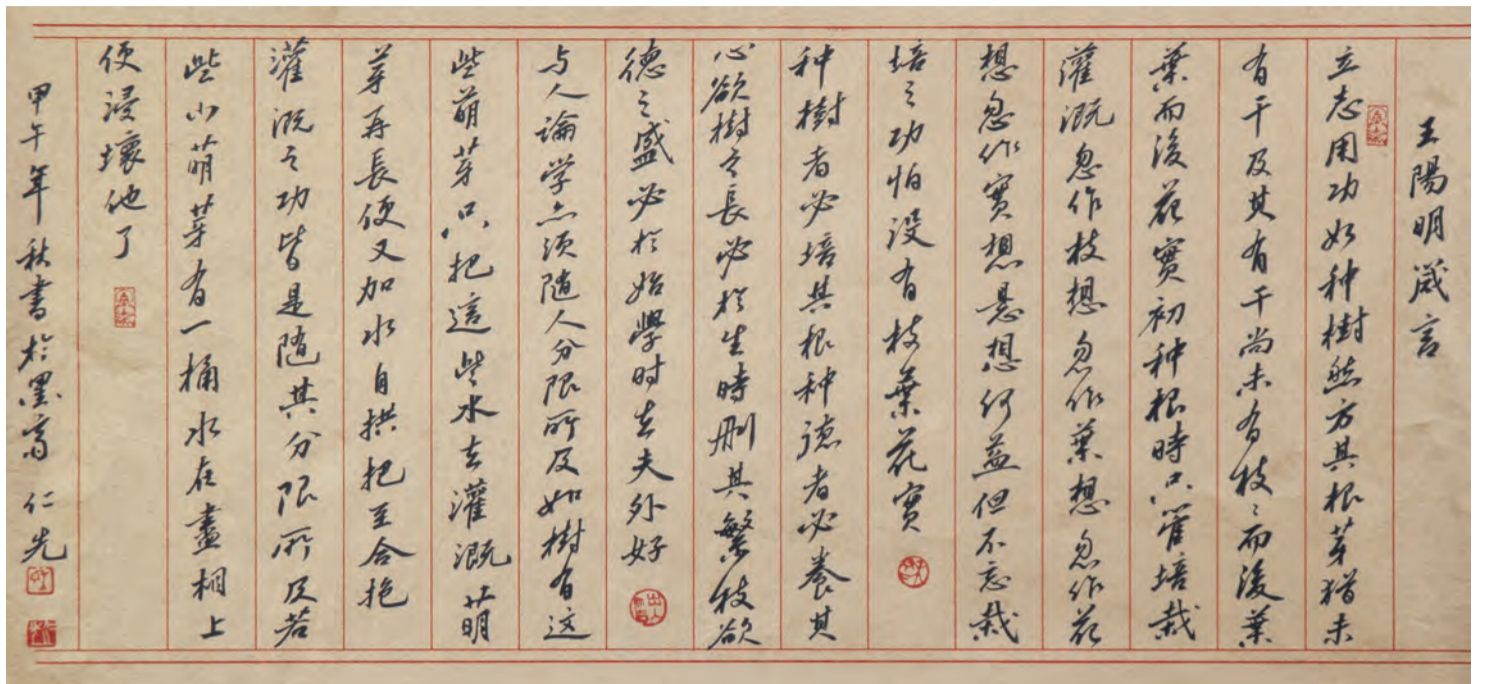 王陽明箴言
立志用功如种樹然方其根芽猶未
有干及其有干尚未有枝〻而後葉
葉而後花實初种根時只管培栽
灌溉忽作枝想忽作葉想忽作花
想忽作實想懸想何益但不忘栽
培之功怕没有枝葉花實
种樹者必培其根种德者必養其
心欲樹之長必於生時刪其繁枝欲
德之盛必於始學时去夫外好
与人論学亦須随人分限所及如樹有这
些萌芽只把這些水去灌溉萌
芽再長便又加水自拱把至合抱
灌溉之功皆是随其分限所及若
些小萌芽有一桶水在盡相上
便浸壞他了
甲午年秋書於墨斋 仁先